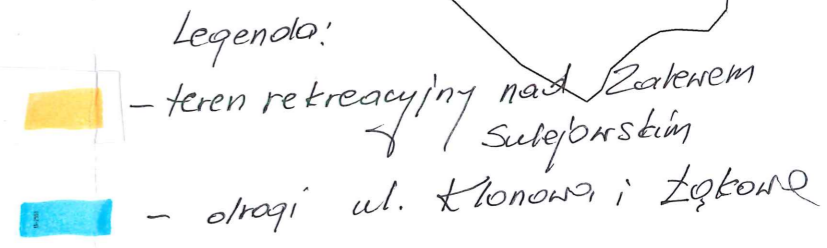 Legenda:
– teren rekreacyjny nad Zalewem
Sulejowskim
– drogi ul. Klonowa i Łąkowa